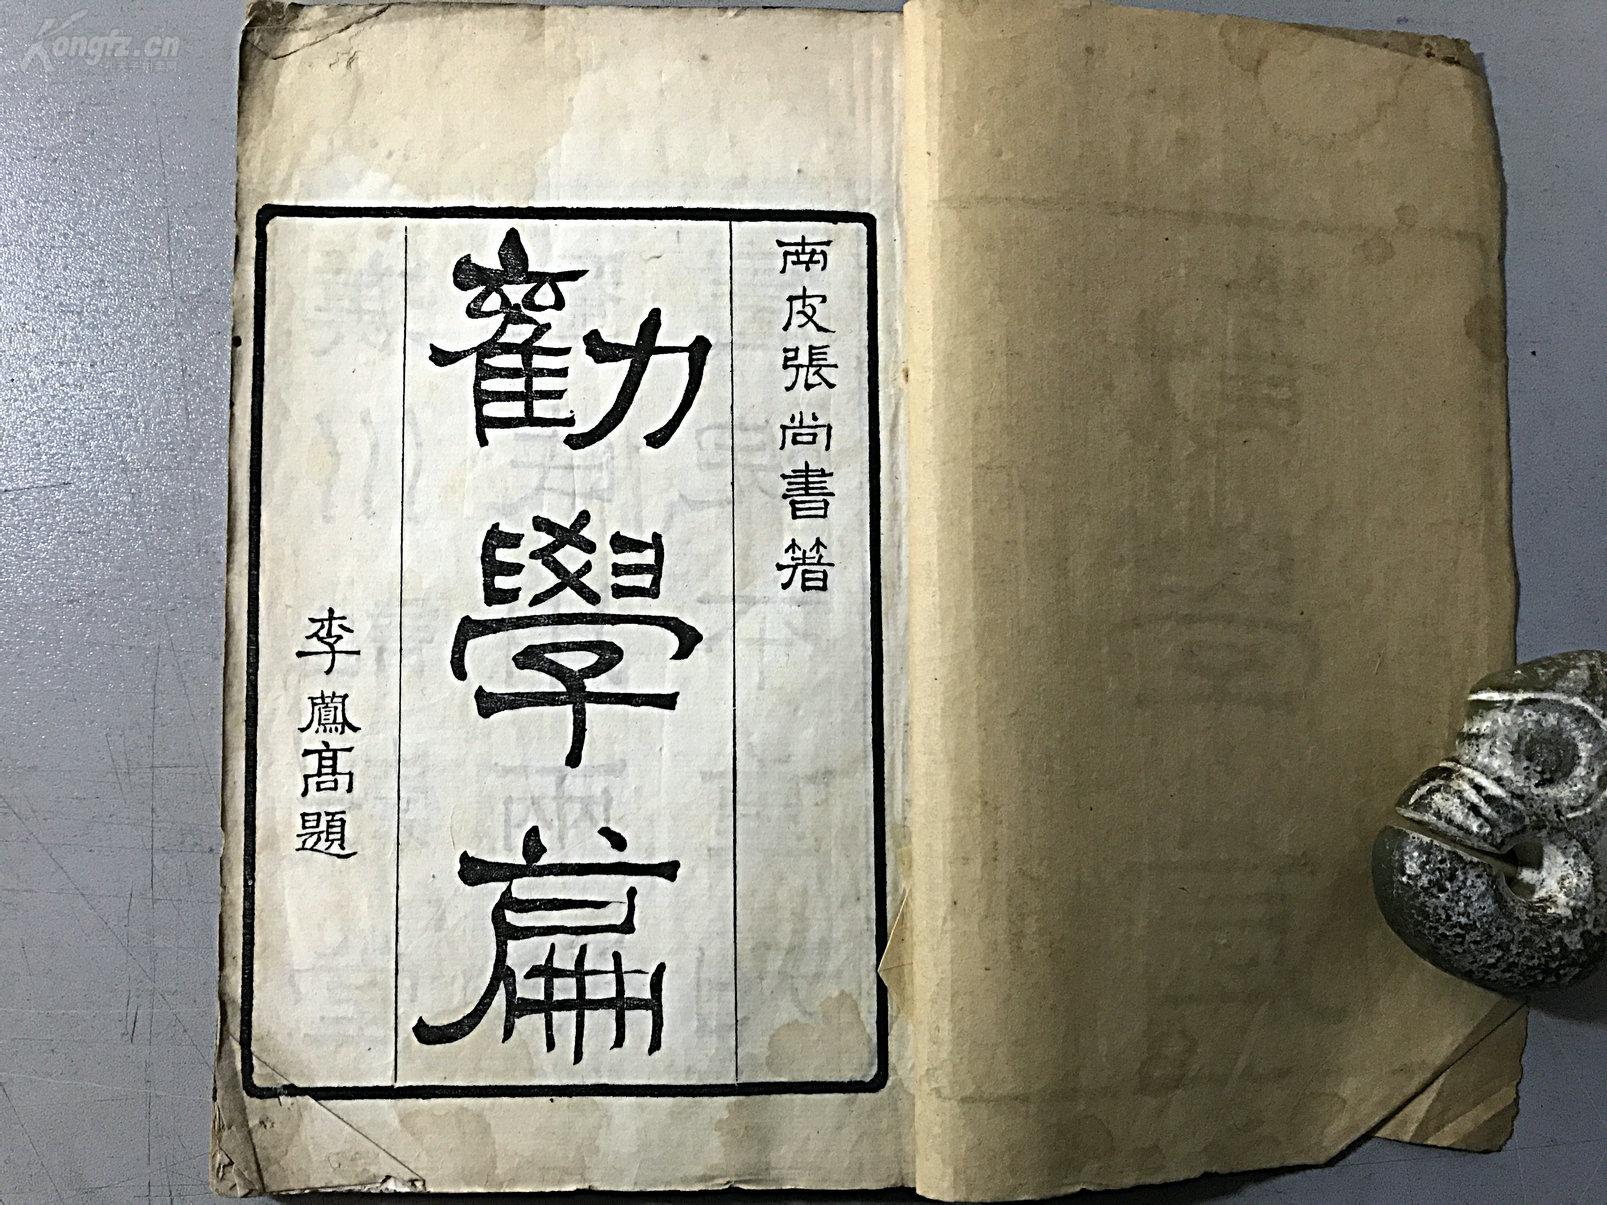 南皮張尚書著
勸學篇
李鳳高題
Kongfz.cn